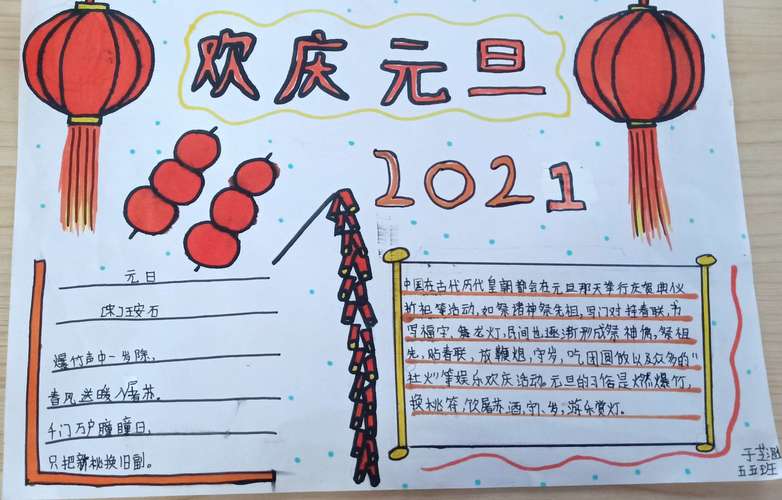 欢庆元旦
2021
元日
[宋]王安石
爆竹声中一岁除,
春风送暖入屠苏。
千门万户曈曈日,
只把新桃换旧副。
中国在古代历代皇朝都会在元旦那天举行庆贺典仪
祈祀等活动,如祭诸神祭先祖,写门对挂春联,书
写福字、舞龙灯,民间也逐渐形成祭神佛,祭祖
先,贴春联,放鞭炮,守岁,吃团圆饭以及众多的"
社火"等娱乐欢庆活动。元旦的习俗是燃爆竹,
换桃符,饮屠苏酒,守岁,游乐赏灯。
于
五五班